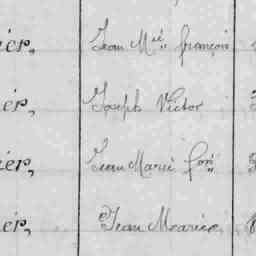 ier, Jean Mie françois
ier, Joseph Victor
ier, Jean Marie fois
ier, Jean Marie